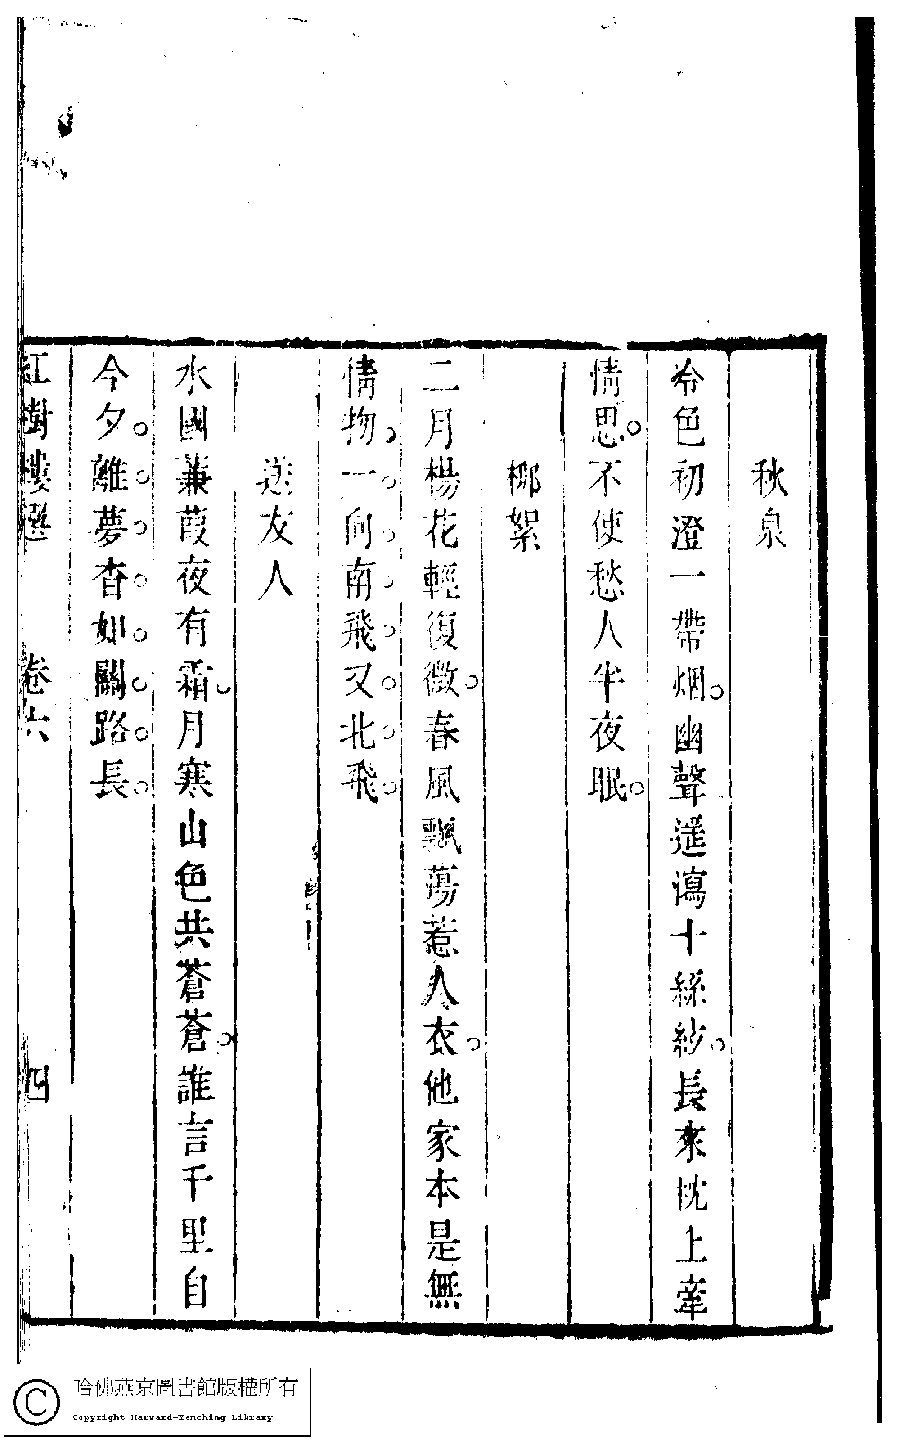 秋泉
冷色初澄一帶烟幽聲遥瀉十絲絃長來枕上牽
情思不使愁人半夜眠
柳絮
二月楊花輕復微春風飄蕩惹人衣他家本是無
情物一向南飛又北飛
送友人
水國蒹葭夜有霜月寒山色共蒼蒼誰言千里自
今夕離夢杳如關路長
紅樹樓選
卷六
四
哈佛燕京圖書館版權所有
Copyright Harvard-Yenching Library